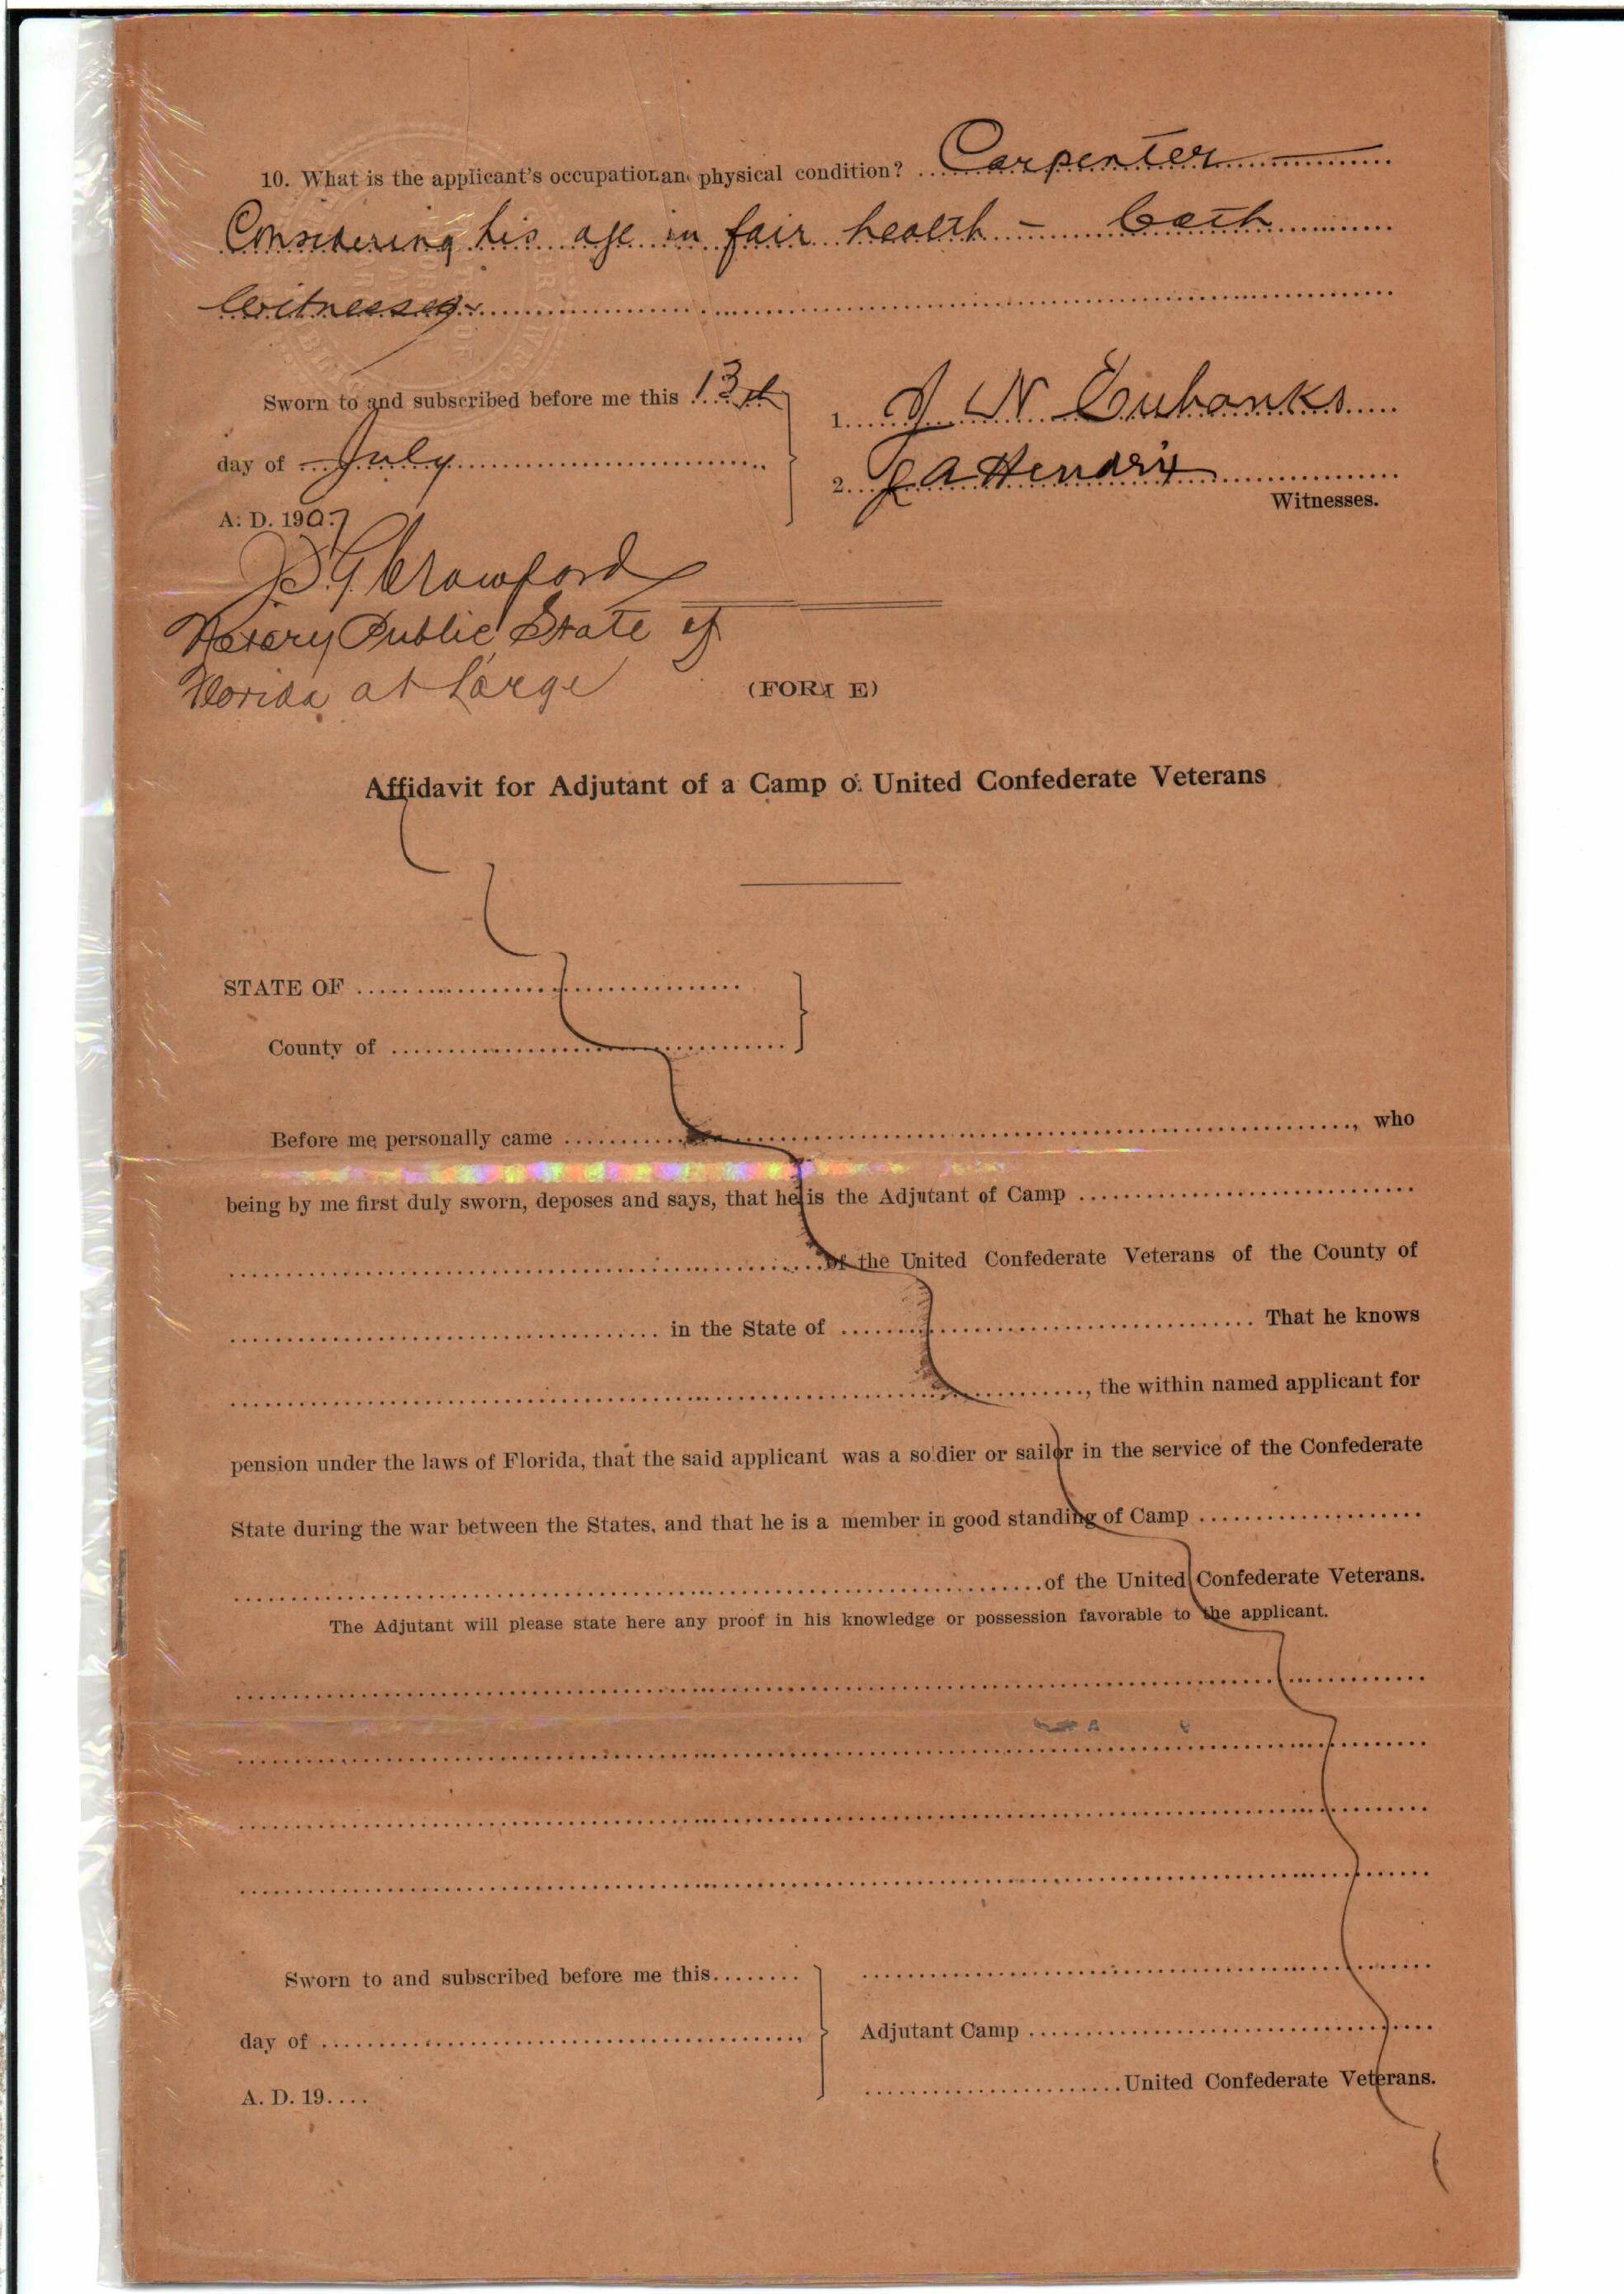 10. What is the applicant's occupation an physical condition? Carpenter
Considering his age in fair health – both
witnesses.
Sworn to and subscribed before me this 13th
1. J N Eubanks
day of July
2. J A Hendrix
Witnesses.
A. D. 1907
Crawford
Notary Public State of
Florida at Large
(FORM E)
Affidavit for Adjutant of a Camp of United Confederate Veterans
STATE OF
County of
Before me personally came , who
being by me first duly sworn, deposes and says, that he is the Adjutant of Camp
of the United Confederate Veterans of the County of
in the State of That he knows
, the within named applicant for
pension under the laws of Florida, that the said applicant was a soldier or sailor in the service of the Confederate
State during the war between the States, and that he is a member in good standing of Camp
of the United Confederate Veterans.
The Adjutant will please state here any proof in his knowledge or possession favorable to the applicant.
Sworn to and subscribed before me this
day of ,
Adjutant Camp
A. D. 19....
United Confederate Veterans.